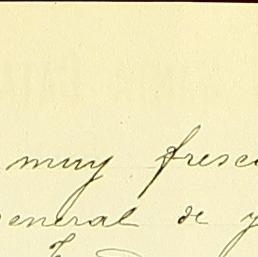 muy fresc
eneral de y